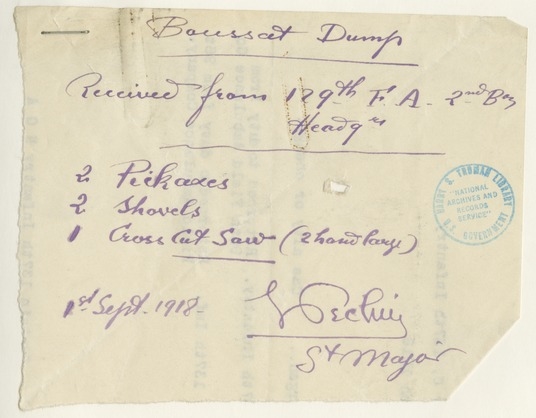 Boussat Dump
Received from 129th F. A. 2nd Bn
Headqrs
2 Pickaxes
2 Shovels
1 Cross Cut Saw (2 hand large)
1st Sept. 1918
St Major
HARRY S. TRUMAN LIBRARY
"NATIONAL
ARCHIVES AND
RECORDS
SERVICE"
U.S. GOVERNMENT